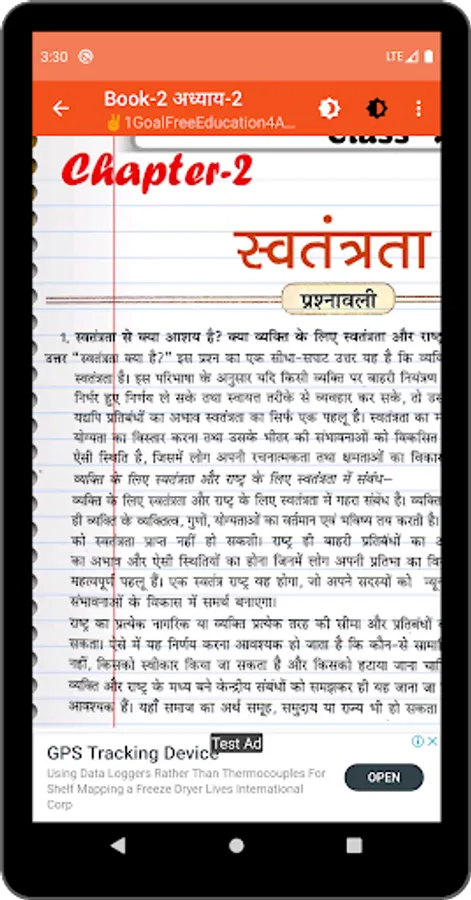 3:30 LTE
Book-2 अध्याय-2
✌1GoalFreeEducation4A...
Class
Chapter-2
स्वतंत्रता
प्रश्नावली
1. स्वतंत्रता से क्या आशय है? क्या व्यक्ति के लिए स्वतंत्रता और राष्ट्
उत्तर "स्वतंत्रता क्या है?" इस प्रश्न का एक सीधा-सपाट उत्तर यह है कि व्यक्ति
स्वतंत्रता है। इस परिभाषा के अनुसार यदि किसी व्यक्ति पर बाहरी नियंत्रण
निर्भर हुए निर्णय ले सके तथा स्वायत्त तरीके से व्यवहार कर सके, तो उस
यद्यपि प्रतिबंधों का अभाव स्वतंत्रता का सिर्फ एक पहलू है। स्वतंत्रता का म
योग्यता का विस्तार करना तथा उसके भीतर की संभावनाओं को विकसित
ऐसी स्थिति है, जिसमें लोग अपनी रचनात्मकता तथा क्षमताओं का विकास
व्यक्ति के लिए स्वतंत्रता और राष्ट्र के लिए स्वतंत्रता में संबंध–
व्यक्ति के लिए स्वतंत्रता और राष्ट्र के लिए स्वतंत्रता में गहरा संबंध है। व्यक्ति
ही व्यक्ति के व्यक्तित्व, गुणों, योग्यताओं का वर्तमान एवं भविष्य तय करती है।
को स्वतंत्रता प्राप्त नहीं हो सकती। राष्ट्र ही बाहरी प्रतिबंधों का अ
का अभाव और ऐसी स्थितियों का होना जिनमें लोग अपनी प्रतिभा का वि
महत्वपूर्ण पहलू हैं। एक स्वतंत्र राष्ट्र वह होगा, जो अपने सदस्यों को न्यू
संभावनाओं के विकास में समर्थ बनाएगा।
राष्ट्र का प्रत्येक नागरिक या व्यक्ति प्रत्येक तरह की सीमा और प्रतिबंधों
सकता। ऐसे में यह निर्णय करना आवश्यक हो जाता है कि कौन-से सामा
नहीं, किसको स्वीकार किया जा सकता है और किसको हटाया जाना चाहि
व्यक्ति और राष्ट्र के मध्य बने केन्द्रीय संबंधों को समझकर ही यह जाना जा
आवश्यक हैं। यहाँ समाज का अर्थ समूह, समुदाय या राज्य भी हो सकता
Test Ad
GPS Tracking Device
Using Data Loggers Rather Than Thermocouples For
Shelf Mapping a Freeze Dryer Lives International
Corp
OPEN